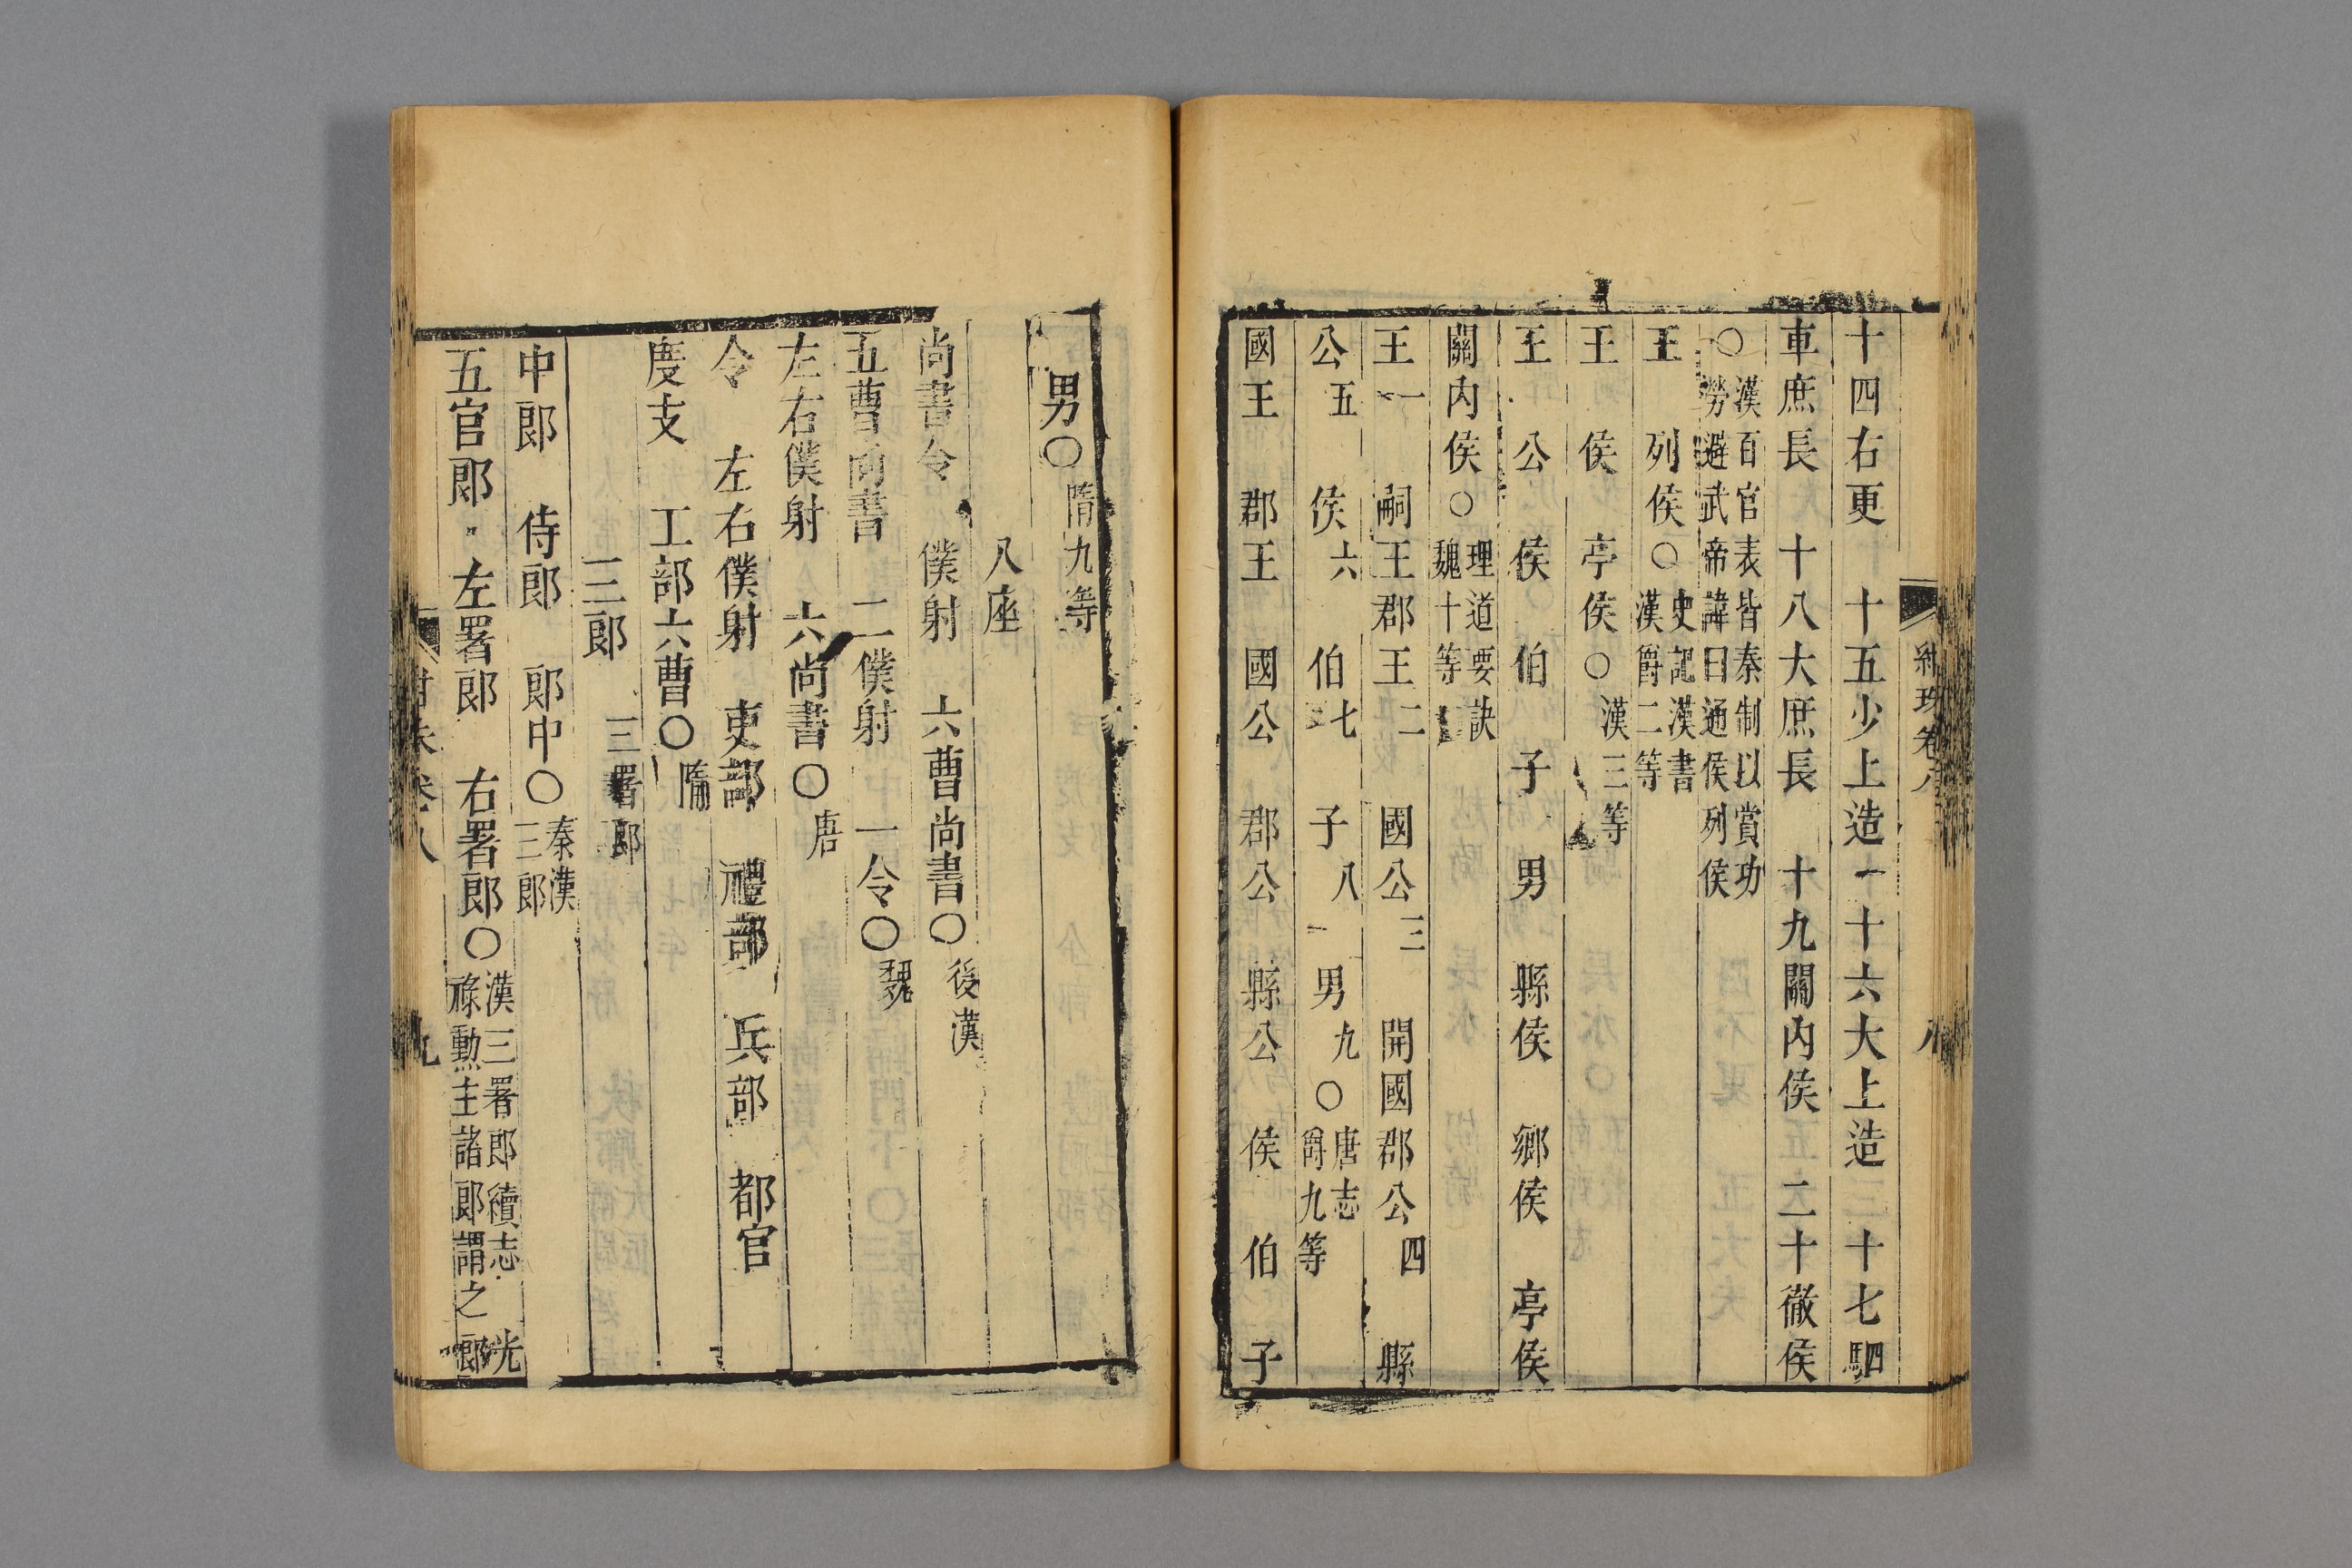 十四右更　十五少上造一十六大上造二十七駟
車庶長　十八大庶長　十九關内侯五二十徹侯
○漢百官表皆秦制以賞功勞避武帝諱曰通侯列侯
王　列侯○史記漢書漢爵二等
王　侯　亭侯○漢三等
王　公　侯　伯　子　男　縣侯　鄉侯　亭侯
關内侯○理道要訣魏十等
王一　嗣王郡王二　國公三　開國郡公四　縣
公五　侯六　伯七　子八　男九○唐志爵九等
國王　郡王　國公　郡公　縣公　侯　伯　子
紺珠卷八　八
男○隋九等
八座
尚書令　僕射　六曹尚書○後漢
五曹尚書　二僕射　一令○魏
左右僕射　六尚書○唐
令　左右僕射　吏部　禮部　兵部　都官
度支　工部六曹○隋
三郎　三署郎
中郎　侍郎　郎中○秦漢三郎
五官郎　左署郎　右署郎○漢三署郎續志光祿勳主諸郎謂之郎
卷八　九